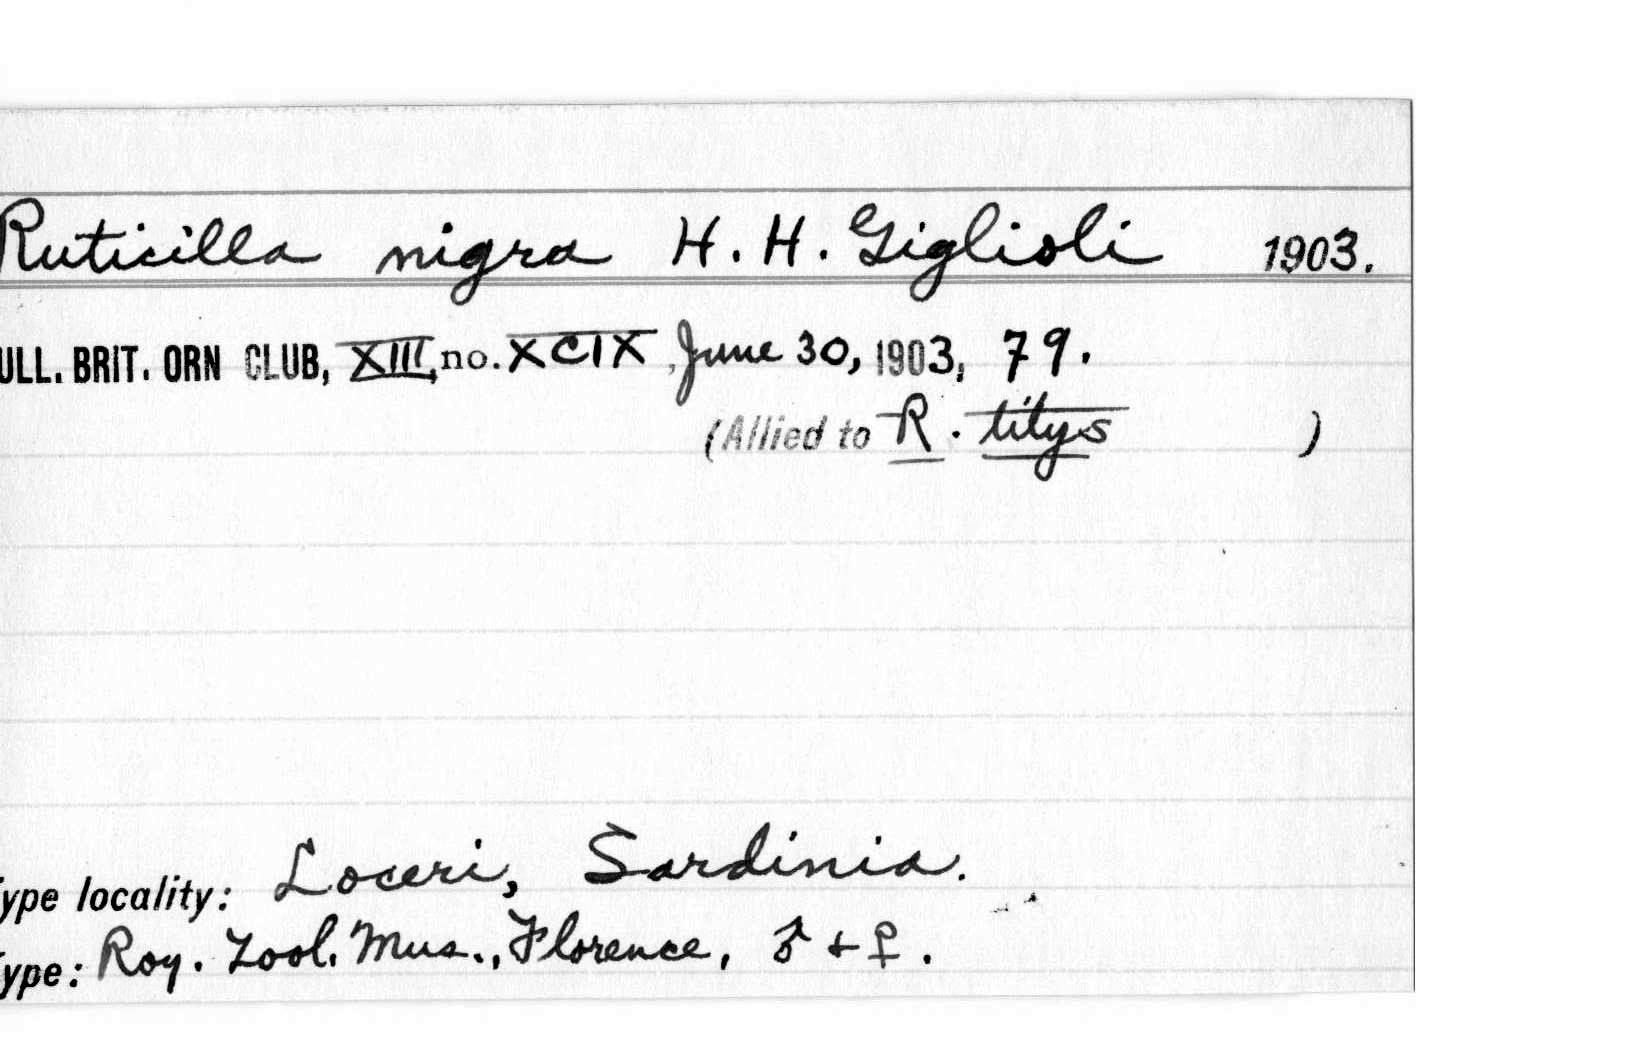 Ruticilla nigra H. H. Giglioli 1903.
ULL. BRIT. ORN CLUB, XIII, no. XCIX, June 30, 1903, 79.
(Allied to R. titys )
Loceri, Sardinia.
ype locality:
ype: Roy. Zool. Mus., Florence, ♂ + ♀.